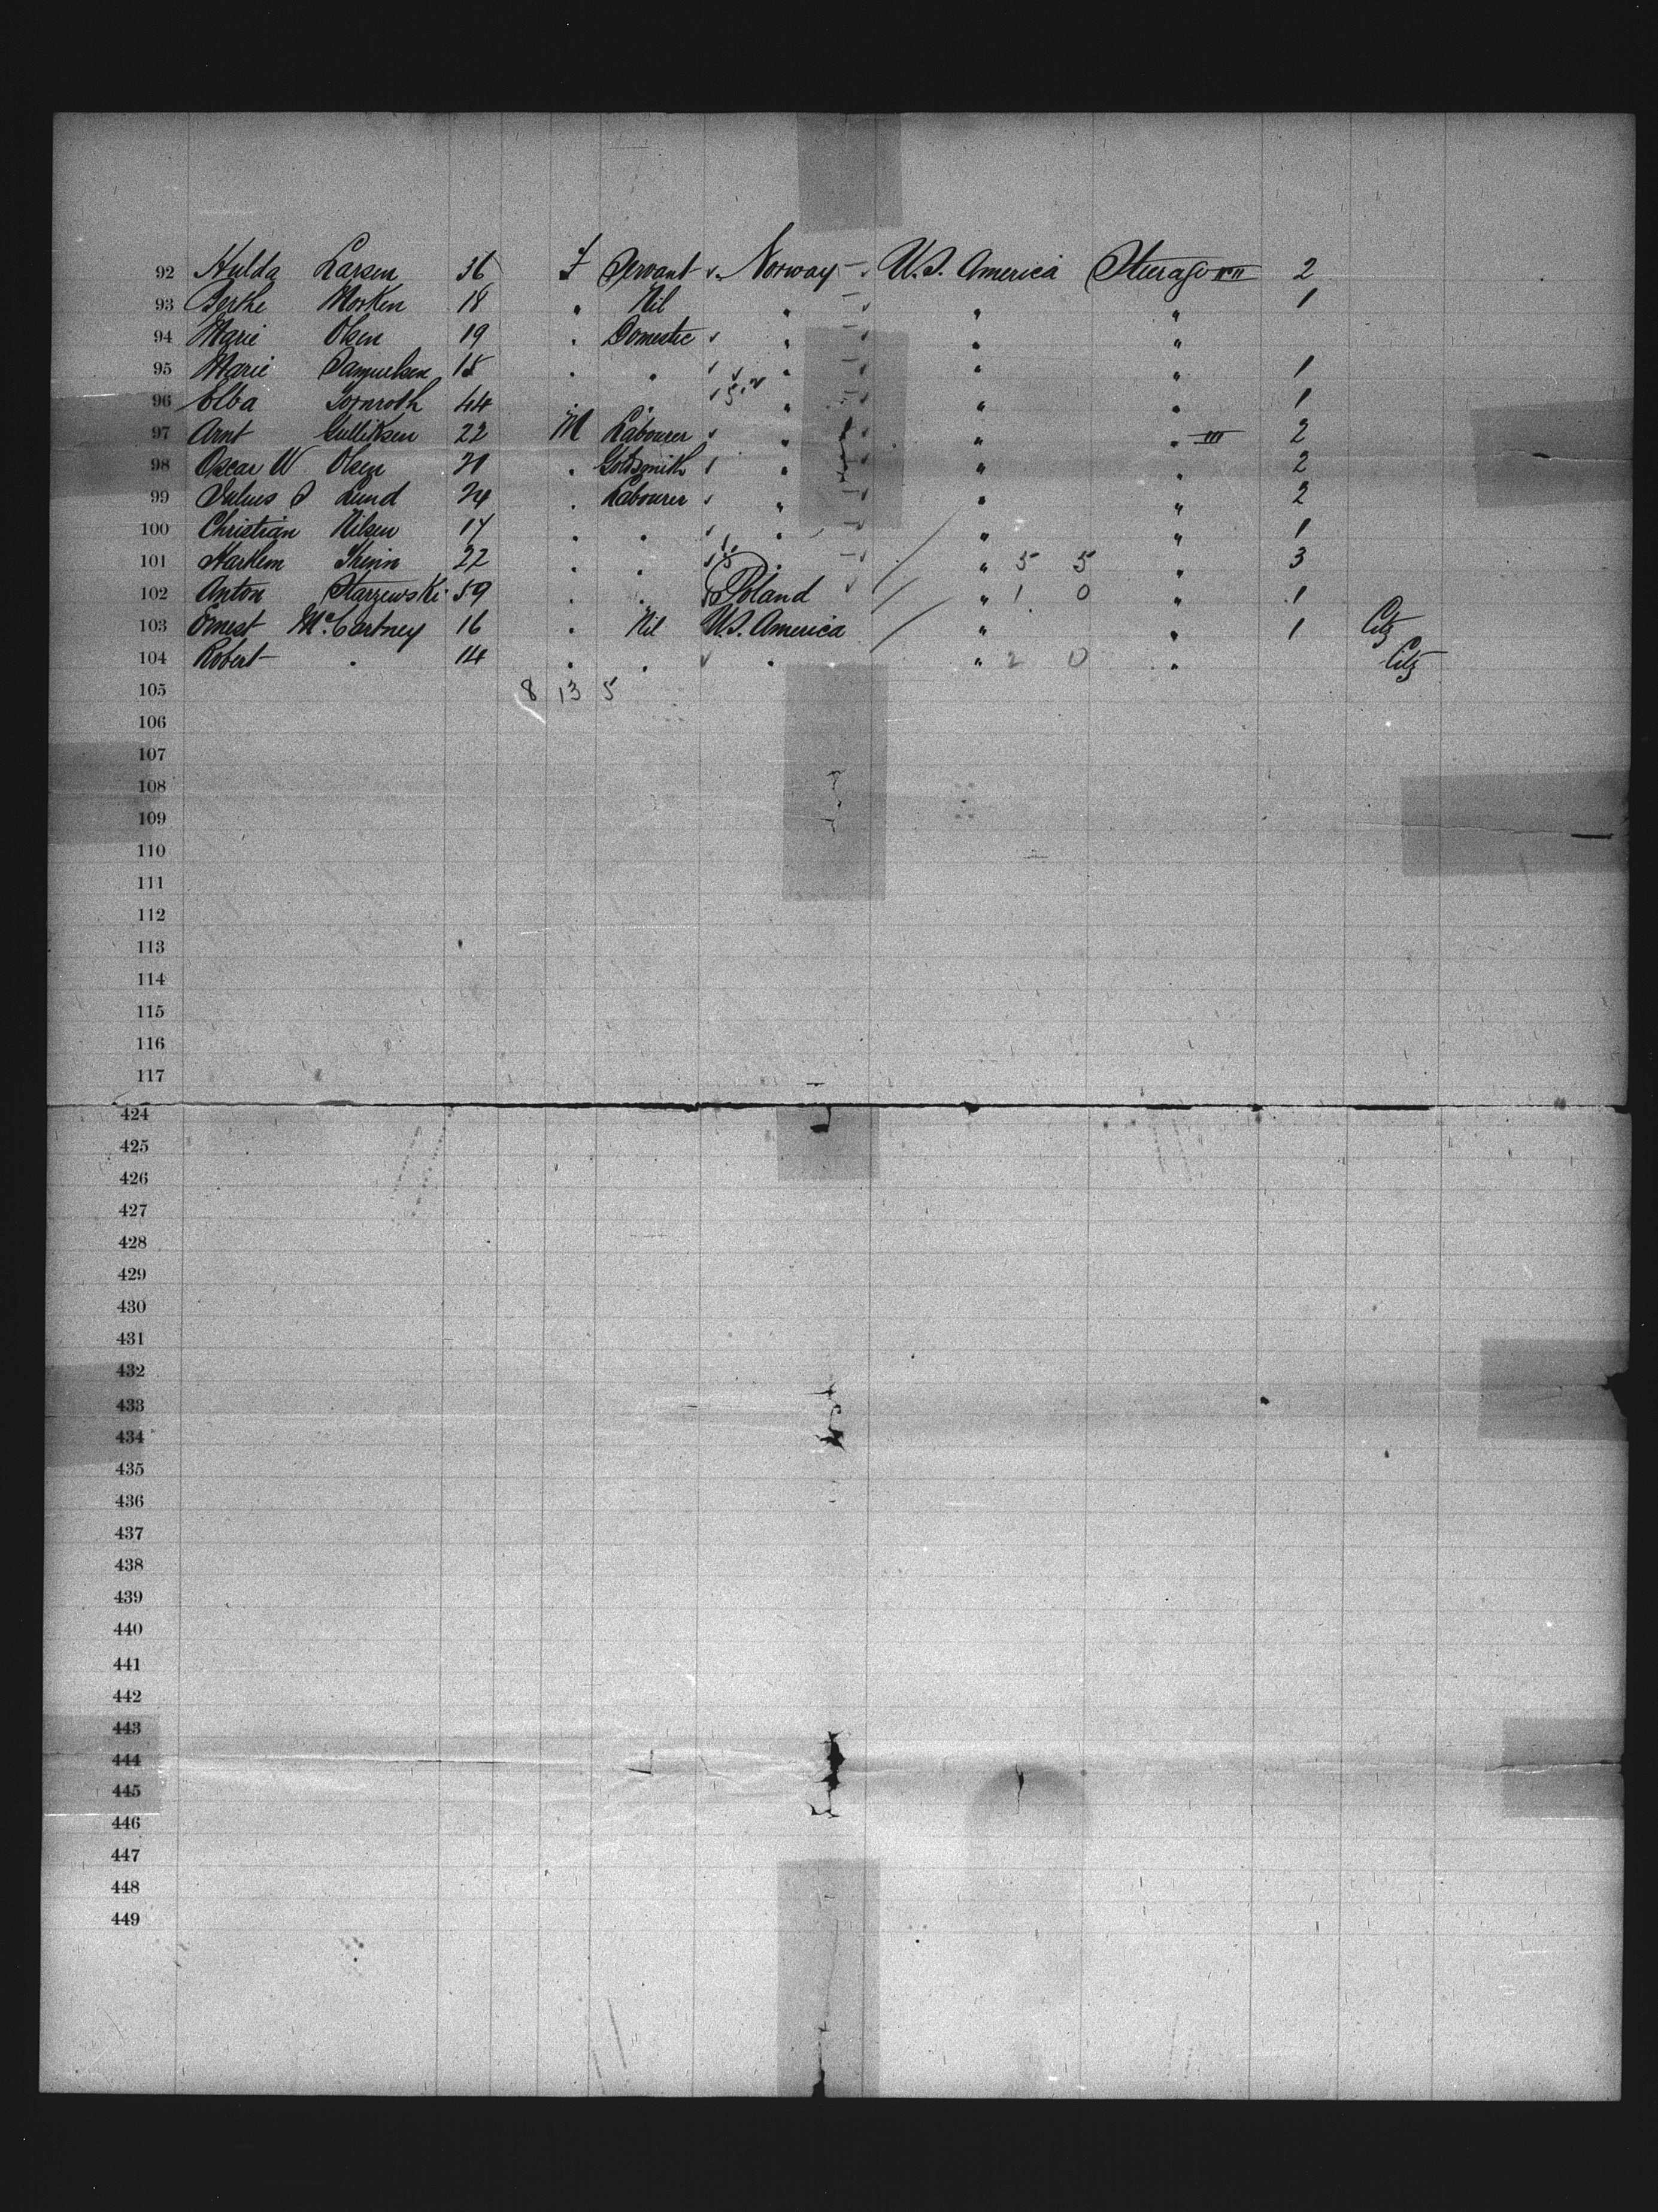 92 Hulda Larsen 36 F Servant Norway U.S. America Steerage 2
93 Berthe Morken 18 " Nil " " " 1
94 Marie Olsen 19 " Domestic " " "
95 Marie Samuelsen 18 " " " " " 1
96 Elba 44 " " " " " 1
97 Arnt Gulliksen 22 M Labourer " " " III 2
98 Oscar W Olsen " Goldsmith " " " 2
99 Julius Lund 24 " Labourer " " " 2
100 Christian Nilsen 17 " " " " " 1
101 22 " " " " 5 5 " 3
102 Anton Starzewski 59 " " Poland " 1 0 " 1
103 Ernest McCartney 16 " Nil U.S. America " " 1 Citz
104 Robert " 14 " " " " 2 0 " Citz
105 8 13 5
106
107
108
109
110
111
112
113
114
115
116
117
424
425
426
427
428
429
430
431
432
433
434
435
436
437
438
439
440
441
442
443
444
445
446
447
448
449